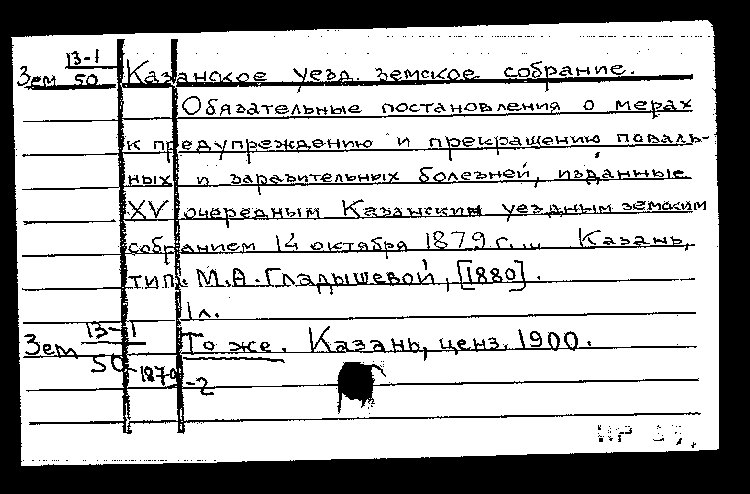 Зем 13-1/50 Казанское уезд. земское собрание.
Обязательные постановления о мерах
к предупреждению и прекращению поваль-
ных и заразительных болезней, изданные
XV очередным Казанским уездным земским
собранием 14 октября 1879 г. Казань,
тип. М.А. Гладышевой, [1880].
1 л.
Зем 13-1/50-1879-2 То же. Казань, ценз. 1900.